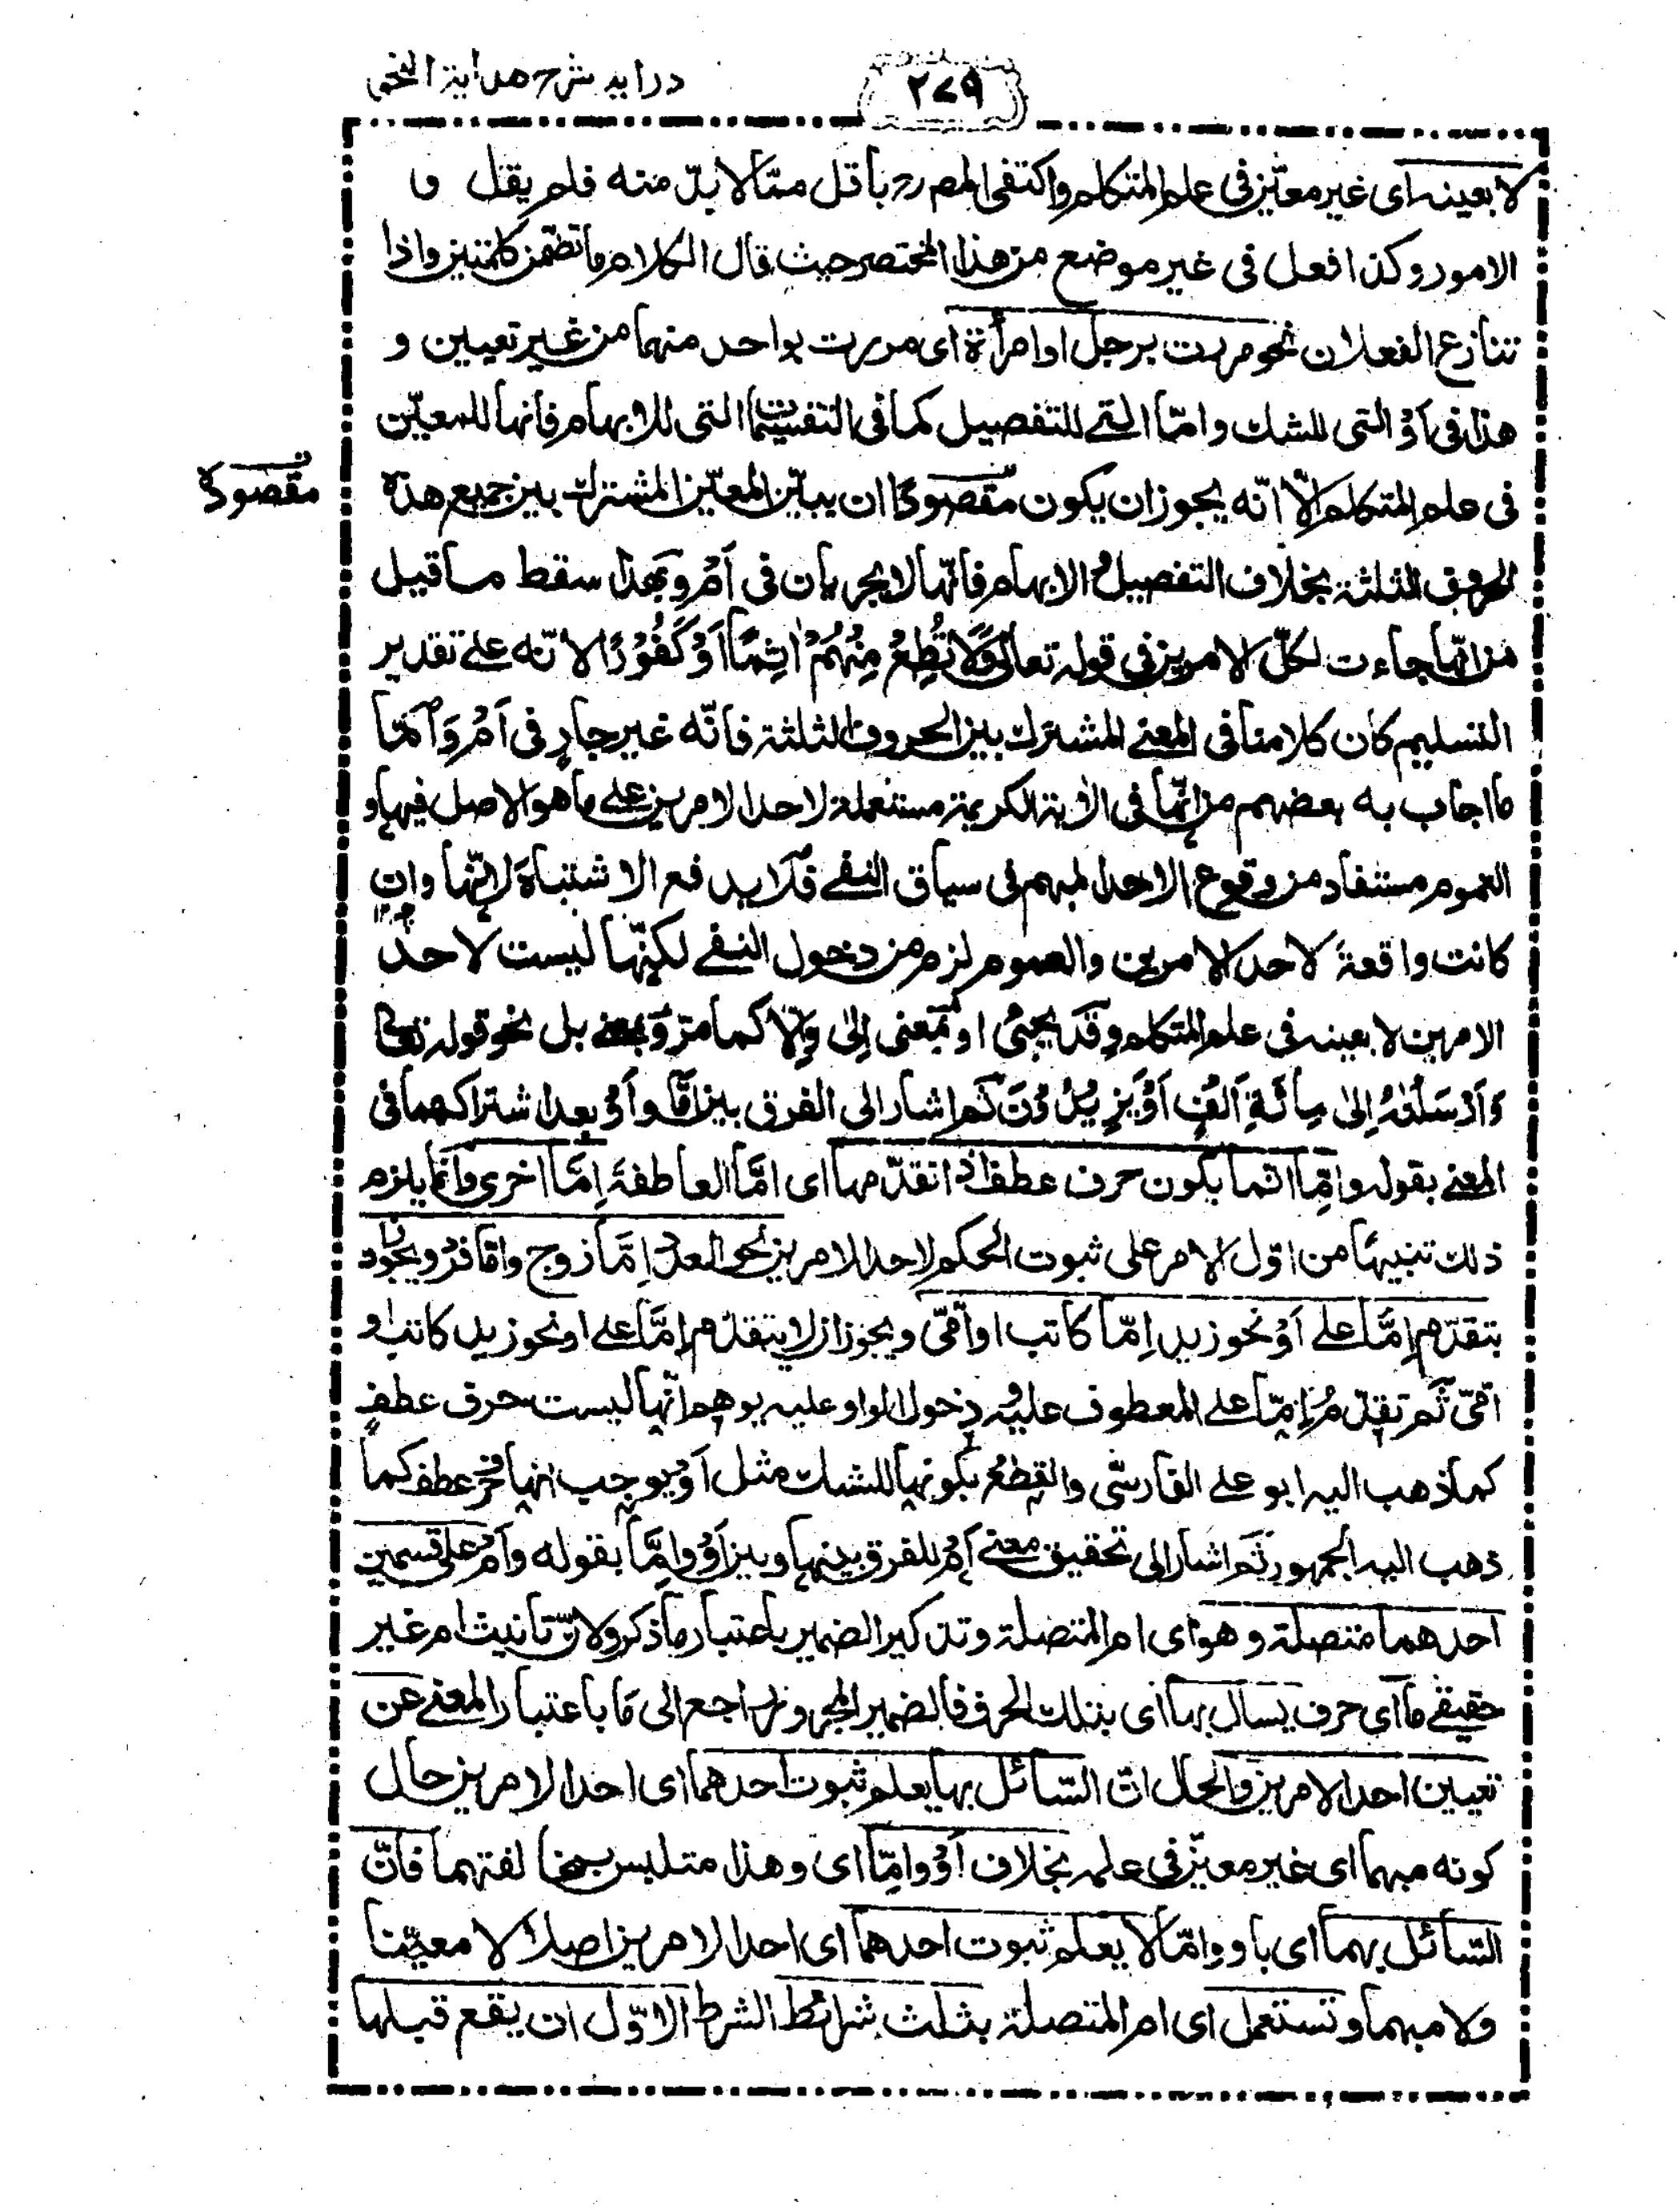 درايه شرح هداية النحو
٢٧٩
لا بعينه اى غير معيّن فى علم المتكلم واكتفى المصرح باقل ممّا لا بدّ منه فلم يقل و
الامور وكذا فعل فى غير موضع من هذا المختصر حيث قال الكلام ما تضمن كلمتين واذا
تنازع الفعلان نحو مررت برجل او امرأة اى مررت بواحد منهما من غير تعيين و
هذا فى أوْ التى للشك وامّا التى للتفصيل كما فى التقسيمات التى للابهام فانها للمعيّن
فى علم المتكلم الّا انّه يجوز ان يكون مقصوده ان يبيّن المعيّن المشترك بين جميع هذه
مقصوده
الحروف الثلثة بخلاف التفصيل والابهام فانّها لا يجريان فى اَمْ وبهذا سقط ما قيل
من انّها جاءت لكلّ الامرين فى قوله تعالى وَلَا تُطِعْ مِنْهُمْ اٰثِمًا اَوْ كَفُوْرًا لانّه على تقدير
التسليم كان كلامنا فى المعنى المشترك بين الحروف الثلثة فانّه غير جارٍ فى اَمْ وَاَمّا
ما اجاب به بعضهم من انّها فى الاية الكريمة مستعملة لاحد الامرين على ما هو الاصل فيها و
العموم مستفاد من وقوع الاحد المبهم فى سياق النفى فلا يدفع الاشتباه لانّها وان
كانت واقعة لاحد الامرين والعموم لزم من دخول النفى لكنّها ليست لاحد
الامرين لا بعينه فى علم المتكلم وقد يجئ او بمعنى اِلىٰ وَاِلّا كما مرّ وبمعنى بل نحو قوله تعالى
وَاَرْسَلْنٰهُ اِلىٰ مِائَةِ اَلْفٍ اَوْ يَزِيْدُوْنَ ثم اشار الى الفرق بين اِمّا واَوْ بعد اشتراكهما فى
المعنى بقوله واِمّا انّما يكون حرف عطف اذا تقدّمها اى امَّا العاطفة اِمَّا اخرى وانّما يلزم
ذلك تنبيها من اوّل الامر على ثبوت الحكم لاحد الامرين نحو العدد اِمَّا زوج واِمّا فرد ويجوز ان
يتقدّم اِمَّا على اَوْ نحو زيد اِمّا كاتب او اُمّىّ ويجوز ان لا يتقدّم اِمَّا على او نحو زيد كاتب او
اُمّىّ ثم تقدّمُ اِمّا على المعطوف عليه ودخول الواو عليه يوهم انّها ليست حرف عطف
كما ذهب اليه ابو على الفارسّى والقطع بكونها للشك مثل اَوْ يوجب انها حرف عطف كما
ذهب اليه الجمهور ثم اشار الى تحقيق معنى اَمْ للفرق بينها وبين اَوْ واِمَّا بقوله واَمْ على قسمين
احدهما متصلة وهو اى ام المتصلة وتذكير الضمير باعتبار ما ذكر ولانّ تانيث ام غير
حقيقى ما اى حرف يسال بها اى بتلك الحرف فالضمير المجرور راجع الى مَا باعتبار المعنى عن
تعيين احد الامرين والحال انّ السّائل بها يعلم ثبوت احدهما اى احد الامرين حال
كونه مبهما اى غير معيّن فى علمه بخلاف اَوْ وامّا اى وهذا متلبس بمخالفتهما فانّ
السّائل بهما اى باو واِمّا لا يعلم ثبوت احدهما اى احد الامرين اصلا لا معيّنا
ولا مبهما وتستعمل اى ام المتصلة بثلث شرائط الشرط الاوّل ان يقع قبلها